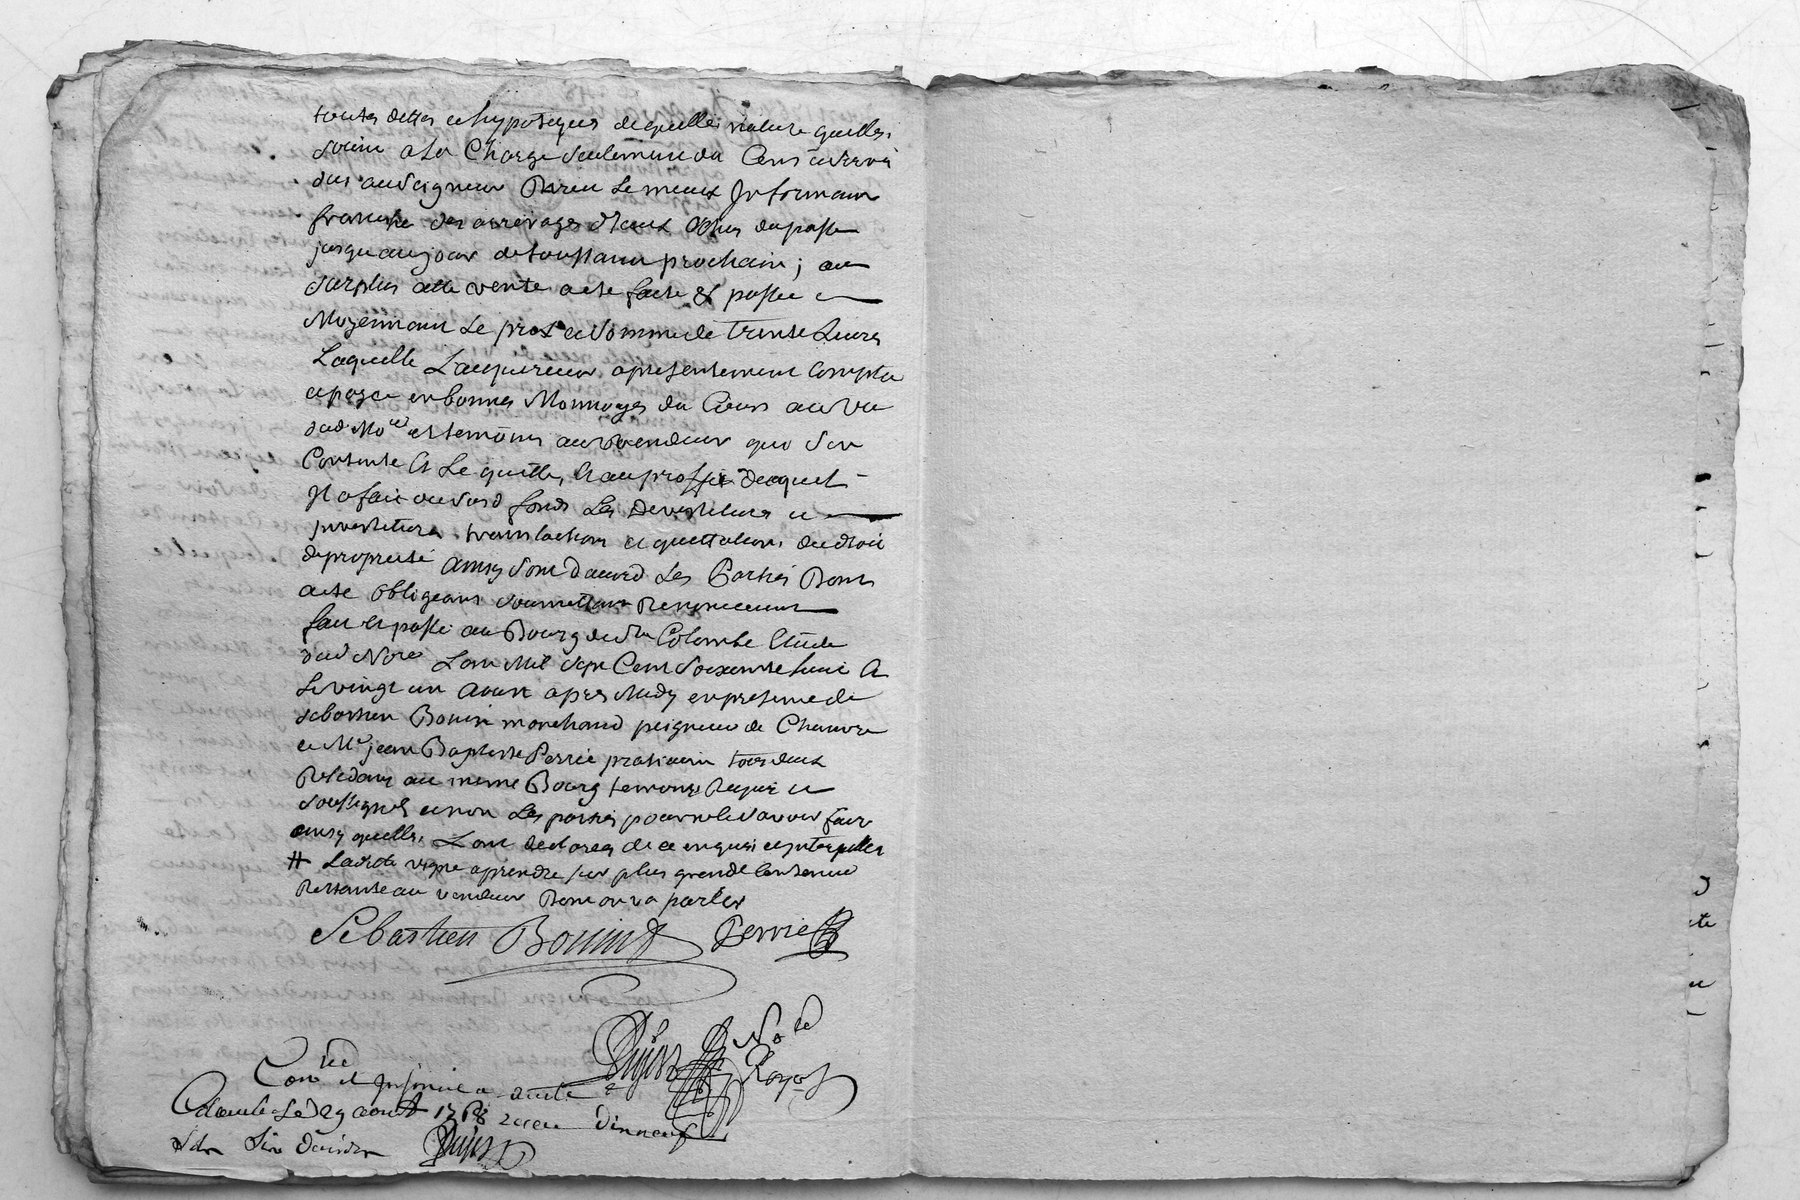 toutes dettes et hypoteques de quelle nature quelles
soint a la Charge seulement du Cens et servis
dus au seigneur Direct le mieux Informant
franche des arrerages d'Iceux du passé
jusqu'au jour de toussaint prochain ; au
surplus cette vente a ete faite & passée
Moyennant Le prix et somme de trente Livres
Laquelle L'acquereur a presentement Compté
et payé en bonnes Monnoyes du Cours au vu
dud Nore et temoins au vendeur qui s'en
Contente et Le quitte, et au proffit dequel
Il a fait dud fonds Les Devestitures et
Investitures translations et quittations du droit
de propriété ainsy sont d'accord Les Parties Dont
acte obligeant soumettant Renonceant
fait et passé au Bourg de Ste Colombe Etude
dud Nore L'an Mil sept Cent soixante huit et
Le vingt un Aoust apres Midy en presence de
sebastien Bouin marchand peigneur de Chanvre
et Me jean Baptiste Perrie praticien tous deux
Residans au meme Bourg temoins Requis et
soussignés et non Les parties pour ne le savoir faire
ainsy quelles L'ont declarez de ce enquis et interpellez
# Ladite vigne a prendre sur plus grande Contenue
Restante au vendeur Dont on va parler
Sebastien Bouin Perrie
Nore Royal
Conlé et Insinué a Sainte
Colombe Le 29 aout 1768 recu